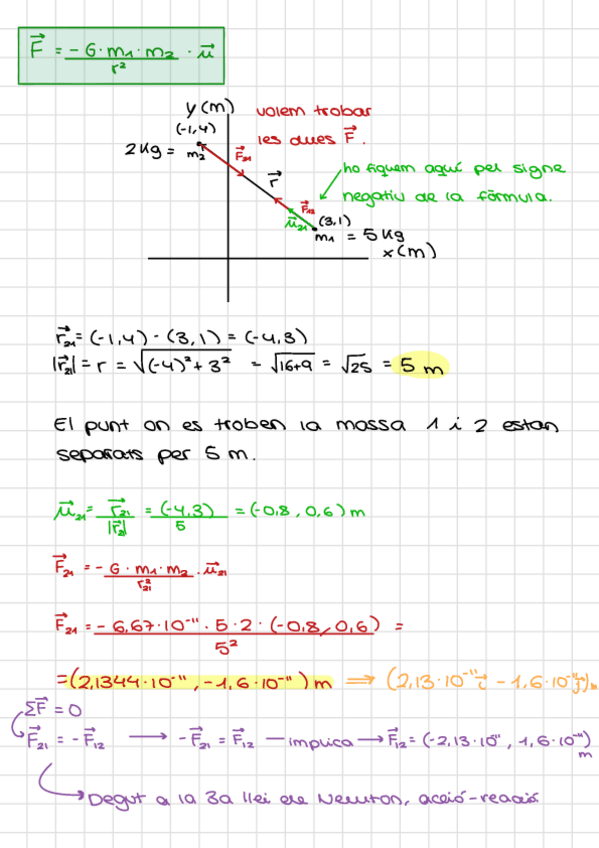 F⃗ = - G · m₁ · m₂ / r² · μ⃗
y (m)
volem trobar
les dues F⃗.
(-1,4)
2 Kg = m₂
F⃗₂₁
r⃗
ho fiquem aquí pel signe
negatiu de la fórmula.
F⃗₁₂
μ⃗₂₁
(3,1)
m₁ = 5 Kg
x (m)
r⃗₂₁ = (-1,4) - (3,1) = (-4,3)
|r⃗₂₁| = r = √((-4)² + 3²) = √(16+9) = √25 = 5 m
El punt on es troben la massa 1 i 2 estan
separats per 5 m.
μ⃗₂₁ = r⃗₂₁ / |r⃗₂₁| = (-4,3) / 5 = (-0,8 , 0,6) m
F⃗₂₁ = - G · m₁ · m₂ / r²₂₁ · μ⃗₂₁
F⃗₂₁ = - 6,67·10⁻¹¹ · 5 · 2 · (-0,8 , 0,6) / 5² =
= (2,1344·10⁻¹¹ , -1,6·10⁻¹¹) m ⟹ (2,13·10⁻¹¹ i⃗ - 1,6·10⁻¹¹ j⃗) m
ΣF⃗ = 0
F⃗₂₁ = - F⃗₁₂ ⟶ - F⃗₂₁ = F⃗₁₂ — implica ⟶ F⃗₁₂ = (-2,13·10⁻¹¹ , 1,6·10⁻¹¹) m
Degut a la 3a llei de Newton, acció-reacció.